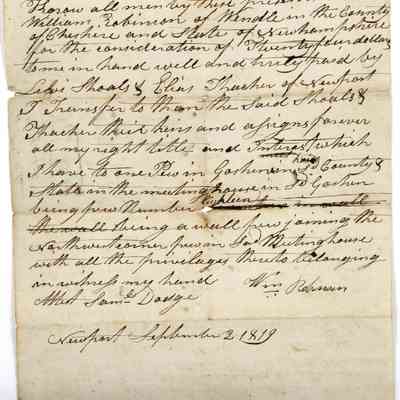 Know all men by these presents
William Robinson of Wendle in the County
of Cheshire and State of Newhampshire
for the consideration of Twenty four dollars
to me in hand well and truly paid by
Levi Shoals & Elias Thacher of Newport
I Transfer to them the Said Shoals &
Thacher their heirs and assigns forever
all my right title and Interest which
I have to one Pew in Goshen in Sd County &
State in the meeting house in Sd Goshen
being pew Number
the wall being a wall pew joining the
Northwest corner pew in Said Meetinghouse
with all the privilages thereto belonging
in witness my hand
Attest Saml Dodge Wm
Newport September 2 1819